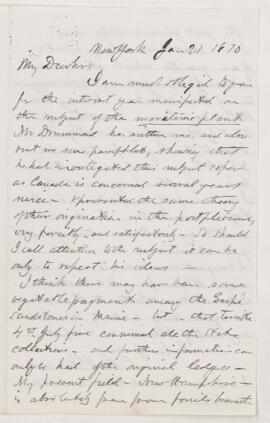 New York Jan 21 1870
My Dear Sir
I am much obliged to you
for the interest you manifested on
the subject of the maritime plants
Mr Drummond has written me, and also
sent me some pamphlets, showing that
he had investigated this subject so far
as Canada is concerned several years
since – & presented the same theory
of their origination in the post pliocene,
very forcibly and satisfactorily – So should
I call attention to the subject it can be
only to repeat his ideas –
I think there may have been some
vegetable fragments among the Gaspé
Sandstones in Maine – but – that terrible
4th July fire consumed all the State
collections – and further information can
only be had of the original ledges –
My present field – New Hampshire –
is absolutely free from fossils beneath